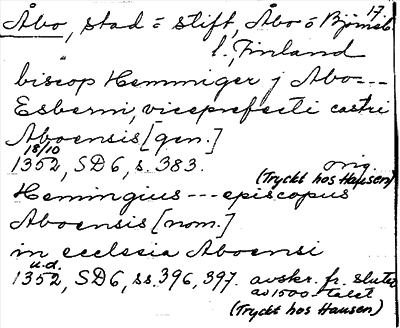 17.
Åbo, stad o stift, Åbo o Björneb.
l., Finland
biscop Hemmiger j Abo---
Esberni, viceprefecti castri
Aboensis [gen.]
18/10
1352, SD6, s. 383. orig.
(Tryckt hos Hausen)
Hemingius --- episcopus
Aboensis [nom.]
in ecclesia Aboensi
u.d.
1352, SD6, ss. 396, 397. avskr. fr. slutet
av 1500-talet
(Tryckt hos Hausen)